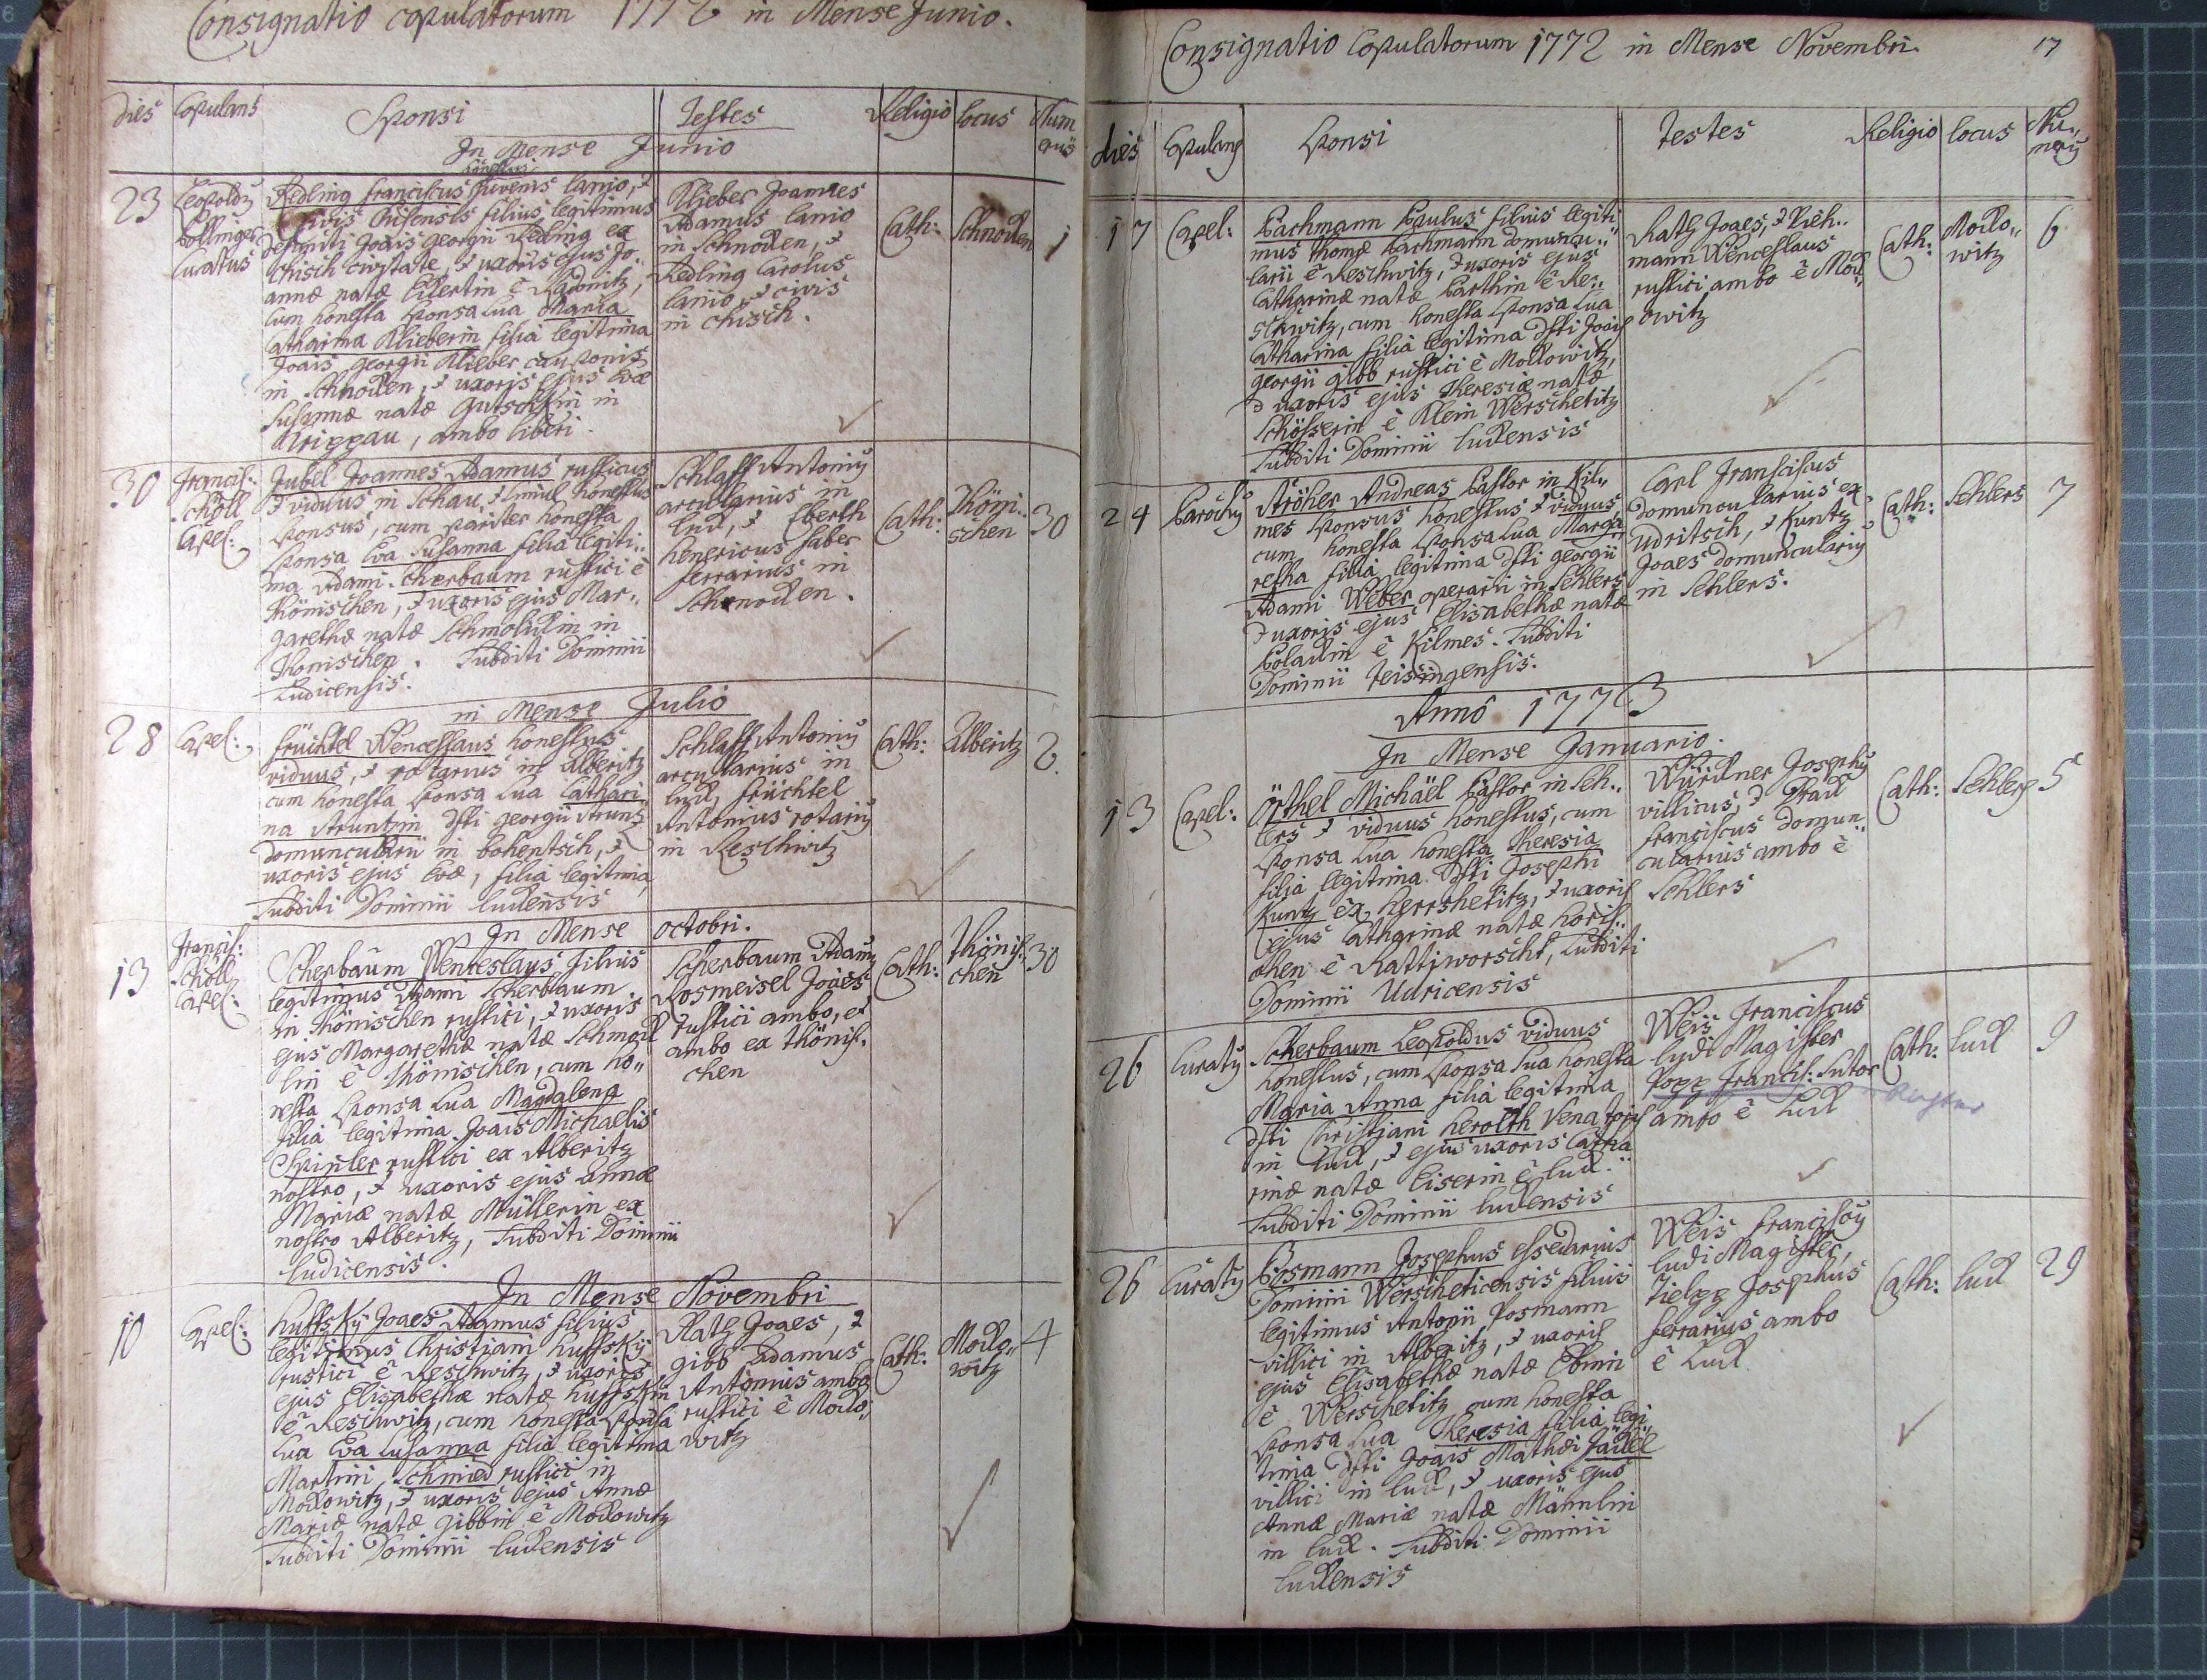 Consignatio copulatorum 1772 in Mense Junio.
dies Copulans Sponsi Testes Religio locus Num
erus
In Mense Junio
honestus
23 Leopoldus Bollinger Curatus
Redling Franciscus Juvenis lanio, &
Civis filius legitimus
defuncti Joais Georgii Redling ex
Chisch civitate, & uxoris ejus Jo„
annæ natæ
cum honesta sponsa sua Maria
Catharina Klieberin filia legitima
Joais Georgii Klieber cauponis
in Schnoden, & uxoris ejus Evæ
Susannæ natæ Gutschkin in
Krippau, ambo liberi.
Klieber Joannes
Adamus lanio
in Schnoden, &
Redling Carolus
lanio, & civis
in Chisch.
Cath: Schnoden 1
30 Francis: Schöll Capel:
Jubel Joannes Adamus rusticus
& viduus in Schau, & simul honestus
sponsus, cum pariter honesta
sponsa Eva Susanna filia legiti„
ma Adami Scherbaum rustici è
Thönischen, & uxoris ejus Mar„
garethæ natæ in
Thonischen. Subditi Dominii
Ludicensis.
Schlaff Antonius
arcularius in
Lud, & Eberth
Henericus faber
ferrarius in
Schenoden.
Cath: Thöni„
schen 30
in Mense Julio
28 Capel:
Früchtel Wenceslaus honestus
viduus, & rotarius in Alberitz
cum honesta sponsa sua Cathari
na Struntzin dfti Georgii Struntz
domuncularii in bohentsch, &
uxoris ejus Evæ, filia legitima,
Subditi Dominii ludensis
Schlaff Antonius
arcularius in
lud, früchtel
Antonius rotarius
in Reschwitz
Cath: Alberitz 2.
In Mense octobri.
13 Francis: Schöll Capel:
Scherbaum Wenceslaus filius
legitimus Adami Scherbaum
in Thönischen rustici, & uxoris
ejus Margarethæ natæ Schmod
lin è Thönischen, cum ho„
nesta sponsa sua Magdalena
filia legitima Joais Michaelis
Spinler rustici ex Alberitz
nostro, & uxoris ejus Annæ
Mariæ natæ Müllerin ex
nostro Alberitz, Subditi Dominii
ludicensis.
Scherbaum Adamus
Rosmeisel Joaes
rustici ambo, et
ambo ex Thönis„
chen
Cath: Thönis„
chen 30
In Mense Novembri
10 Capel:
Huffsky Joaes Adamus filius
legitimus Christiani Huffsky
rustici è Reschwitz, & uxoris
ejus Elisabethæ natæ Huffskin
è Reschwitz, cum honesta sponsa
sua Eva Susanna filia legitima
Martini Schmied rustici in
Modowitz, & uxoris ejus Annæ
Mariæ natæ Gibbin è Modowitz
Subditi Dominii ludensis
Ratz Joaes, &
Gibb Adamus
Antonius ambo
rustici è Modo„
witz
Cath: Modo„
witz 4
Consignatio Copulatorum 1772 in Mense Novembri.
17
dies Copulans Sponsi testes Religio locus Nu„
merus
17 Capel:
Bachmann Paulus filius legiti
mus Thomæ Bachmann domuncu„
larii è Reschwitz, & uxoris ejus
Catharinæ natæ Barthin è Re„
schwitz, cum honesta sponsa sua
Catharina filia legitima dfti Joais
Georgii Gibb rustici è Modowitz,
& uxoris ejus Theresiæ natæ
Schösserin è Klein Werschetitz
Subditi Dominii ludensis
Ratz Joaes, & Rieh„
mann Wenceslaus
rustici ambo è Mod„
owitz
Cath: Modo„
witz 6
24 Parochus
Ströher Andreas Pastor in Kil„
mes sponsus honestus & viduus,
cum honesta sponsa sua Marga
retha filia legitima dfti Georgii
Adami Weber operarii in Sehlers
& uxoris ejus Elisabethæ natæ
è Kilmes. Subditi
Dominii Teisingensis.
Carl Franciscus
domuncularius ex
Udritsch, & Kuntz
Joaes domuncularius
in Sehlers.
Cath: Sehlers 7
Anno 1773
In Mense Januario.
13 Capel:
Örthel Michäel Pastor in Seh„
lers & viduus honestus, cum
sponsa sua honesta Theresia
filia legitima dfti Josephi
Kuntz ex Herrshetitz, & uxoris
ejus Catharinæ natæ
è Rattiworscht, Subditi
Dominii Udricensis
Würdner Josephus
villicus, &
Franciscus domun„
cularius ambo è
Sehlers
Cath: Sehlers 5
26 Curatus
Scherbaum Leopoldus viduus
honestus, cum sponsa sua honesta
Maria Anna filia legitima
dfti Christiani Herolth Venatoris
in Lud, & ejus uxoris Catha
rinæ natæ Liserin è Lud.
Subditi Dominii ludensis
Weis Franciscus
ludi Magister
Popp Francis: Sutor
ambo è Lud
Cath: lud 9
26 Curatus
Posmann Josephus essedarius
Dominii Werscheticensis filius
legitimus Antonii Posmann
villici in Alberitz, & uxoris
ejus Elisabethæ natæ Ebmin
è Werschetitz cum honesta
sponsa sua Theresia filia legi„
tima dfti Joais Mathæi Jäckel
villici in Lud, & uxoris ejus
Annæ Mariæ natæ Männlin
in Lud. Subditi Dominii
ludensis
Weis Franciscus
ludi Magister,
Tielpp Josephus
ferrarius ambo
è Lud
Cath: lud 29